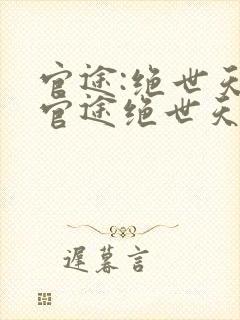 官途:绝世天
官途绝世天
遅暮言